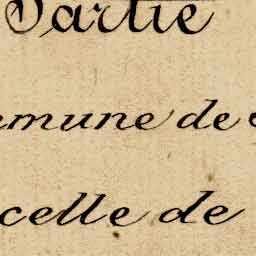 Partie
mmune de
celle de